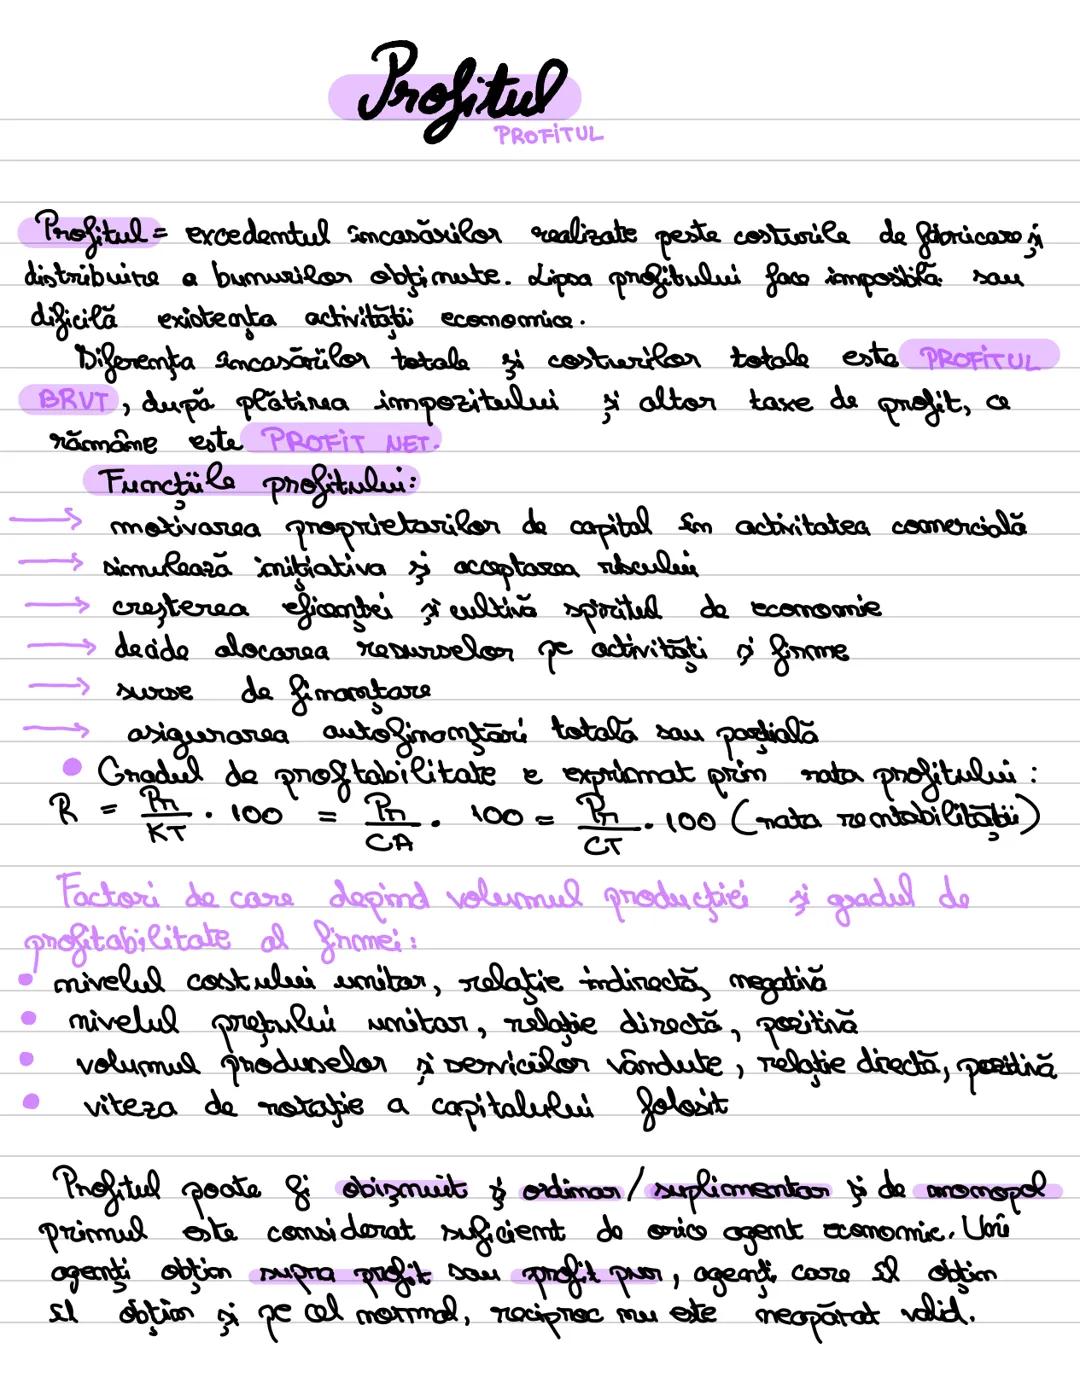 Profitul
PROFITUL
Profitul = excedentul încasărilor realizate peste costurile de fabricare și
distribuire a bunurilor obținute. Lipsa profitului face imposibilă sau
dificilă existența activității economice.
Diferența încasărilor totale și costurilor totale este PROFITUL
BRUT, după plătirea impozitului și altor taxe de profit, ce
rămâne este PROFIT NET.
Funcțiile profitului:
→ motivarea proprietarilor de capital în activitatea comercială
→ simulează inițiativa și acceptarea riscului
→ creșterea eficenței și cultivă spiritul de economie
→ decide alocarea resurselor pe activități și firme
→ surse de finanțare
→ asigurarea autofinanțări totală sau parțială
• Gradul de profitabilitate e exprimat prin rata profitului:
R = Pn/KT · 100 = Pn/CA · 100 = Pn/CT · 100 (rata rentabilității)
Factori de care depind volumul producției și gradul de
profitabilitate al firmei:
• nivelul costului unitar, relație indirectă, negativă
• nivelul prețului unitar, relație directă, pozitivă
• volumul produselor și serviciilor vândute, relație directă, pozitivă
• viteza de rotație a capitalului folosit
Profitul poate fi obișnuit și ordinar/suplimentar și de monopol
primul este considerat suficient de orice agent economic. Unii
agenți obțin supra profit sau profit pur, agenți care îl obțin
îl obțin și pe cel normal, reciproc nu este neapărat valid.